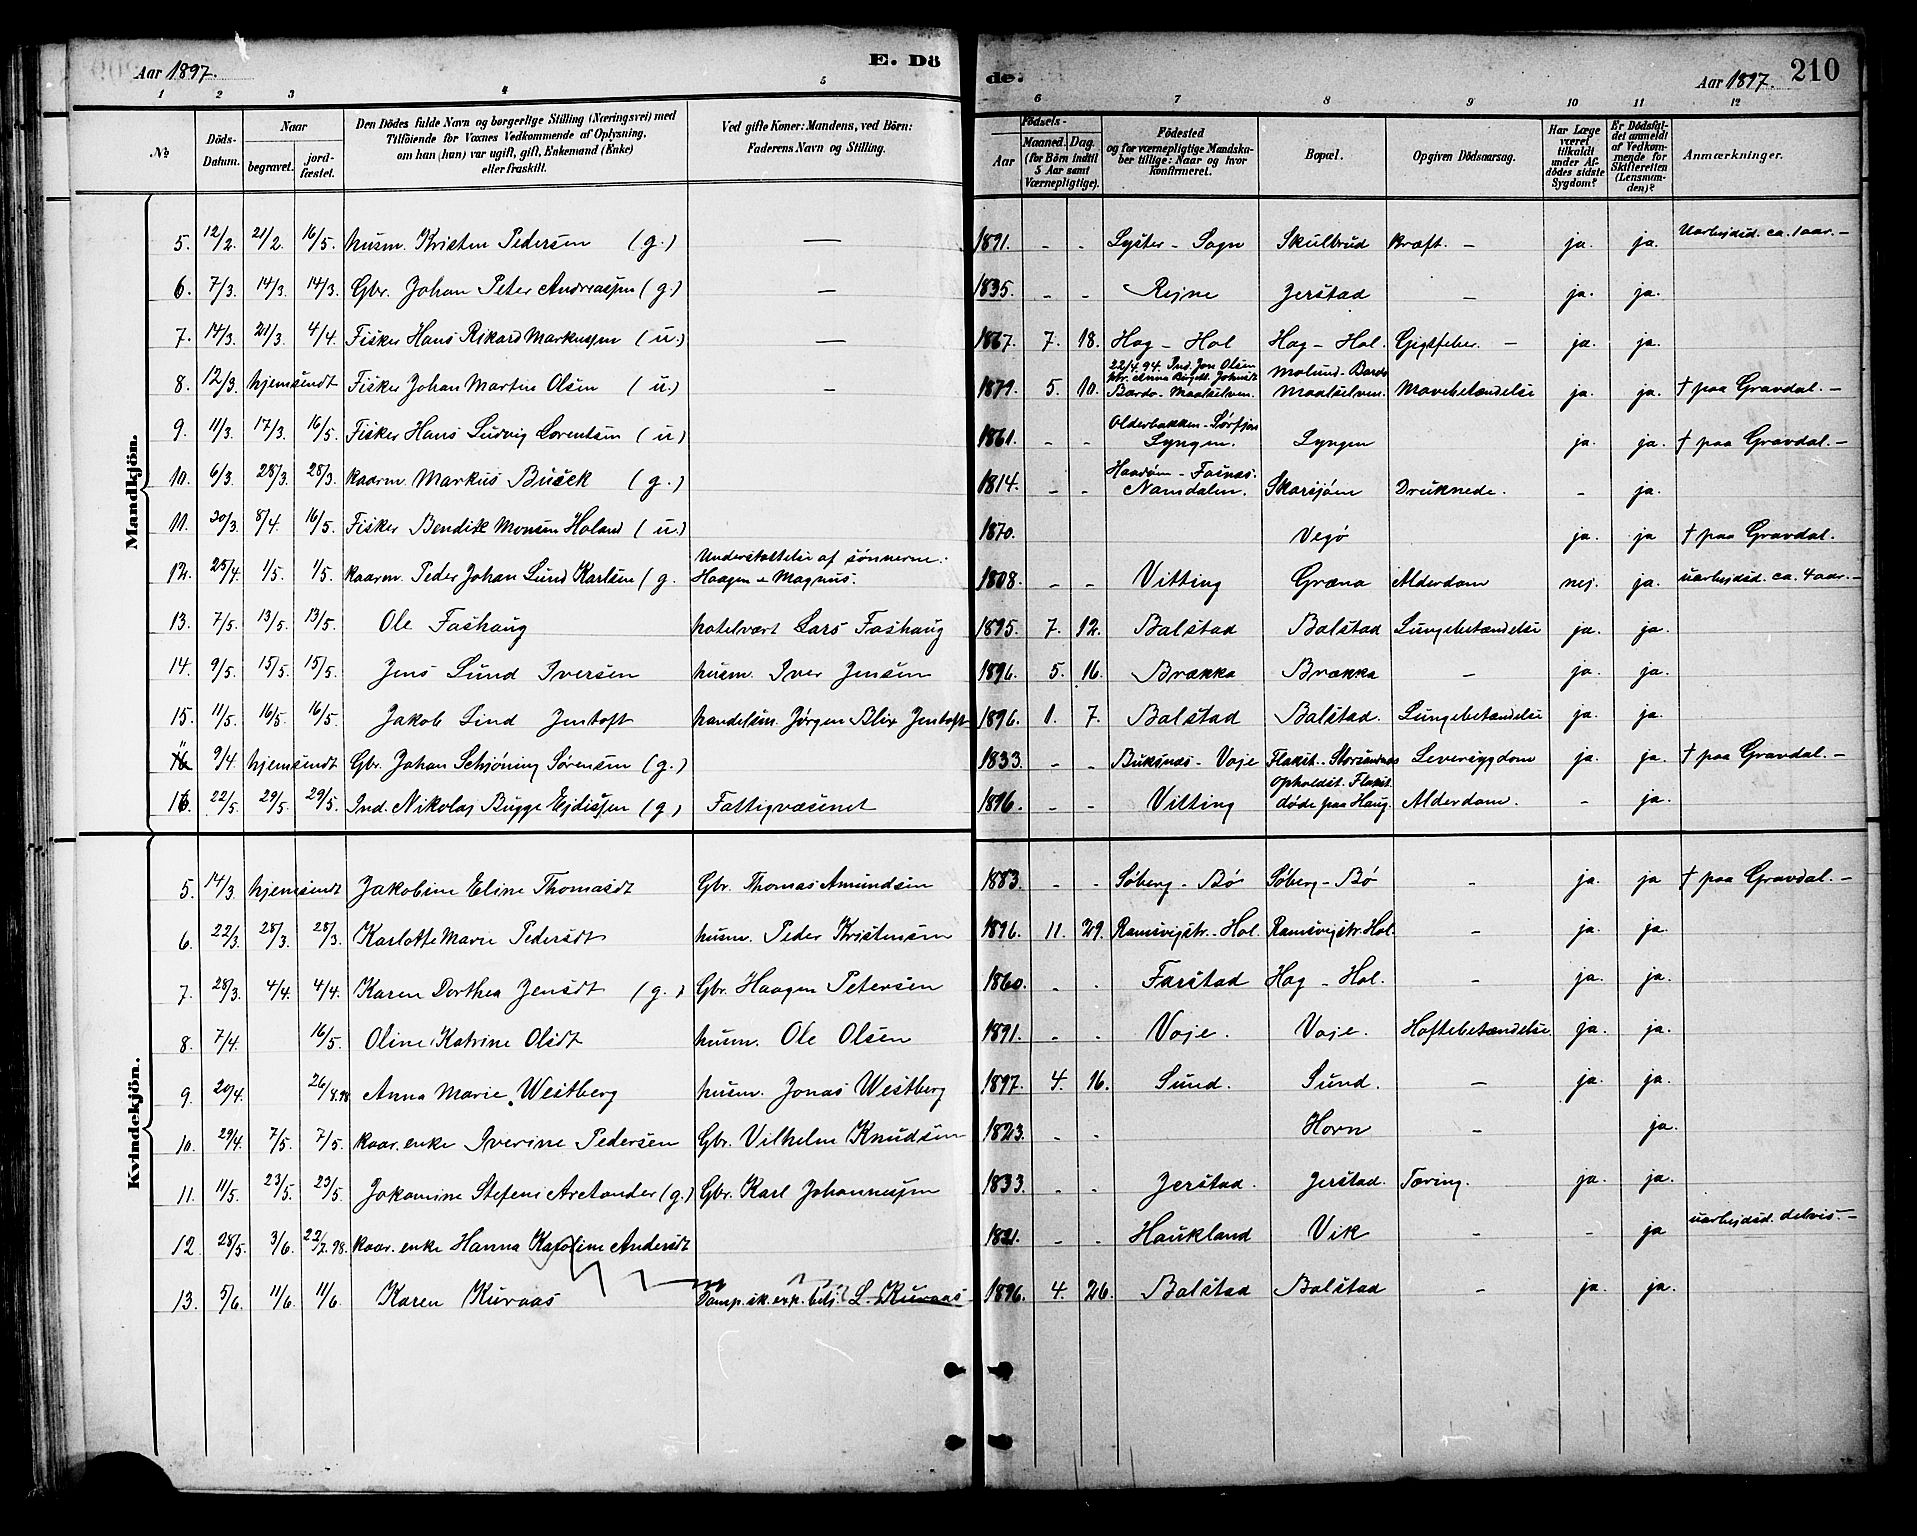 Aar 1897.
E. Dö
de.
Aar 1897.
210
1 2 3 4 5 6 7 8 9 10 11 12
№
Döds-Datum.
Naar
begravet.
jord-fæstet.
Den Dödes fulde Navn og borgerlige Stilling (Næringsvei) med
Tilföiende for Voxnes Vedkommende af Oplysning,
om han (hun) var ugift, gift, Enkemand (Enke)
eller fraskilt.
Ved gifte Koner: Mandens, ved Börn:
Faderens Navn og Stilling.
Födsels-
Aar
Maaned. Dag.
(for Börn indtil
5 Aar samt
Værnepligtige).
Födested
og for værnepligtige Mandska-
ber tillige: Naar og hvor
konfirmeret.
Bopæl.
Opgiven Dödsaarsag.
Har Læge
været
tilkaldt
under Af-
dödes sidste
Sygdom?
Er Dödsfal-
det anmeldt
af Vedkom-
mende for
Skifteretten
(Lensman-
den)?
Anmærkninger.
Mandkjön.
5. 12/2. 21/2. 16/5. husm. Kristen Pedersen (g.) — 1891. - - Lyster - Sogn Skulbrud Kræft. - ja. ja. Uarbejdsd. ca. 1 aar. -
6. 7/3. 14/3. 14/3. Gbr. Johan Peter Andreassen (g.) — 1835. - - Rejne Jerstad - ja. ja.
7. 14/3. 21/3. 4/4. Fisker Hans Rikard Markussen (u.) — 1867. 7. 18. Hag - Hol Hag - Hol. Gigtfeber. - ja. ja.
8. 12/3. hjemsendt Fisker Johan Martin Olsen (u.) - 1879. 5. 10. 22/4.94. Ind. Jon Olsen Bardo - Maalselven. Molund - Bardo Maalselven. Mavebetændelse ja. ja. † paa Gravdal. -
9. 11/3. 17/3. 16/5. Fisker Hans Ludvig Lorentsen (u) 1861. - - Olderbakken - Sørfjor Lyngen. Lyngen ja. ja. † paa Gravdal. -
10. 6/3. 28/3. 28/3. Kaarm. Markus Buschk (g.) 1814. - - Namdalen. Skarsjøen Druknede. - ja.
11. 30/3. 8/4. 16/5. Fisker Bendik Monsen Holand (u.) 1870. Vegø ja. ja † paa Gravdal.
12. 25/4. 1/5. 1/5. Kaarm. Peder Johan Lund Karlsen (g. Understøttelse af sønnerne: Haagen & Magnus. 1808. - - Vitting Græna Alderdom nej. ja. uarbejdsd. ca. 4 aar. -
13. 7/5. 13/5. 13/5. Ole Fashaug hotelvært Lars Fashaug 1895. 7. 12. Balstad Balstad Lungebetændelse ja. ja.
14. 9/5. 15/5. 15/5. Jens Lund Iversen husm. Iver Jensen 1896. 5. 16. Brækka Brækka - ja. ja.
15. 11/5. 16/5. 16/5. Jakob Lind Jentoft handelsm. Jørgen Blix Jentoft 1896. 1. 7. Balstad Balstad. Lungebetændelse ja. ja.
" 16 9/4. hjemsendt Gbr. Johan Schjøning Sørensen (g.) 1833. - - Buksnæs - Voje Flakst. - Leversygdom ja. ja. † paa Gravdal. -
16. 22/5. 29/5. 29/5. Ind. Nikolaj Bugge Ejdissen (g) Fattigvæsenet 1896. - - Vitting Opholdst. Flakst. døde paa Haug. Alderdom. - ja.
Kvindekjön.
5. 14/3. hjemsendt Jakobine Eline Thomasdt Gbr. Thomas Amundsen 1883. - - Søberg - Bø Søberg - Bø - ja. ja † paa Gravdal. -
6. 22/3. 28/3. 28/3. Karlotte Marie Pedersdt husm. Peder Kristensen 1896. 11. 29. Ramsvigstr. - Hol. Ramsvigstr. Hol. - ja. ja.
7. 28/3. 4/4. 4/4. Karen Dorthea Jensdt (g.) Gbr. Haagen Petersen 1860. - - Farstad Hag - Hol. - ja. ja.
8. 7/4. 16/5. Oline Katrine Olsdt husm. Ole Olsen 1891. - - Voje. Voje. Hoftebetændelse ja. ja.
9. 20/4. 26/4.98 Anna Marie Westberg husm. Jonas Westberg 1897. 4. 16. Sund. Sund. - ja. ja.
10. 29/4. 7/5. 7/5. kaar. enke Iverine Pedersen Gbr. Vilhelm Knudsen 1823. - - Horn - ja.
11. 11/5. 23/5. 23/5. Jakomine Stefeni Arctander (g.) Gbr. Karl Johannessen 1833. - - Jerstad. Jerstad. Tæring. ja. ja.
12. 28/5. 3/6. 22/7.98. kaar. enke Hanna Karoline Andersdt 1821. - Haukland Vik - - ja uarbejdsd. delvis. -
13. 5/6. 11/6. 11/6. Karen Kuraas Damp.sk.exp. L. Kuraas 1896. 4. 26. Balstad Balstad - ja. ja.